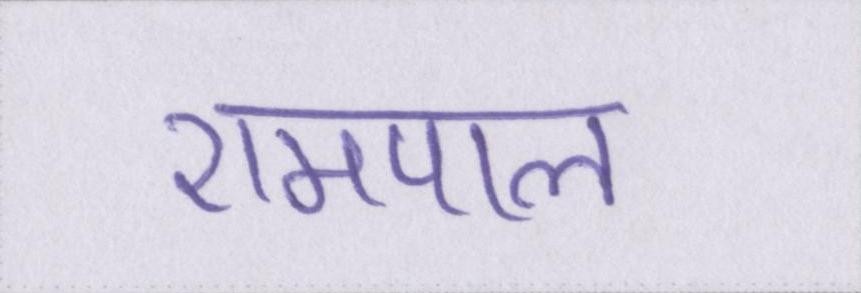 रामपाल